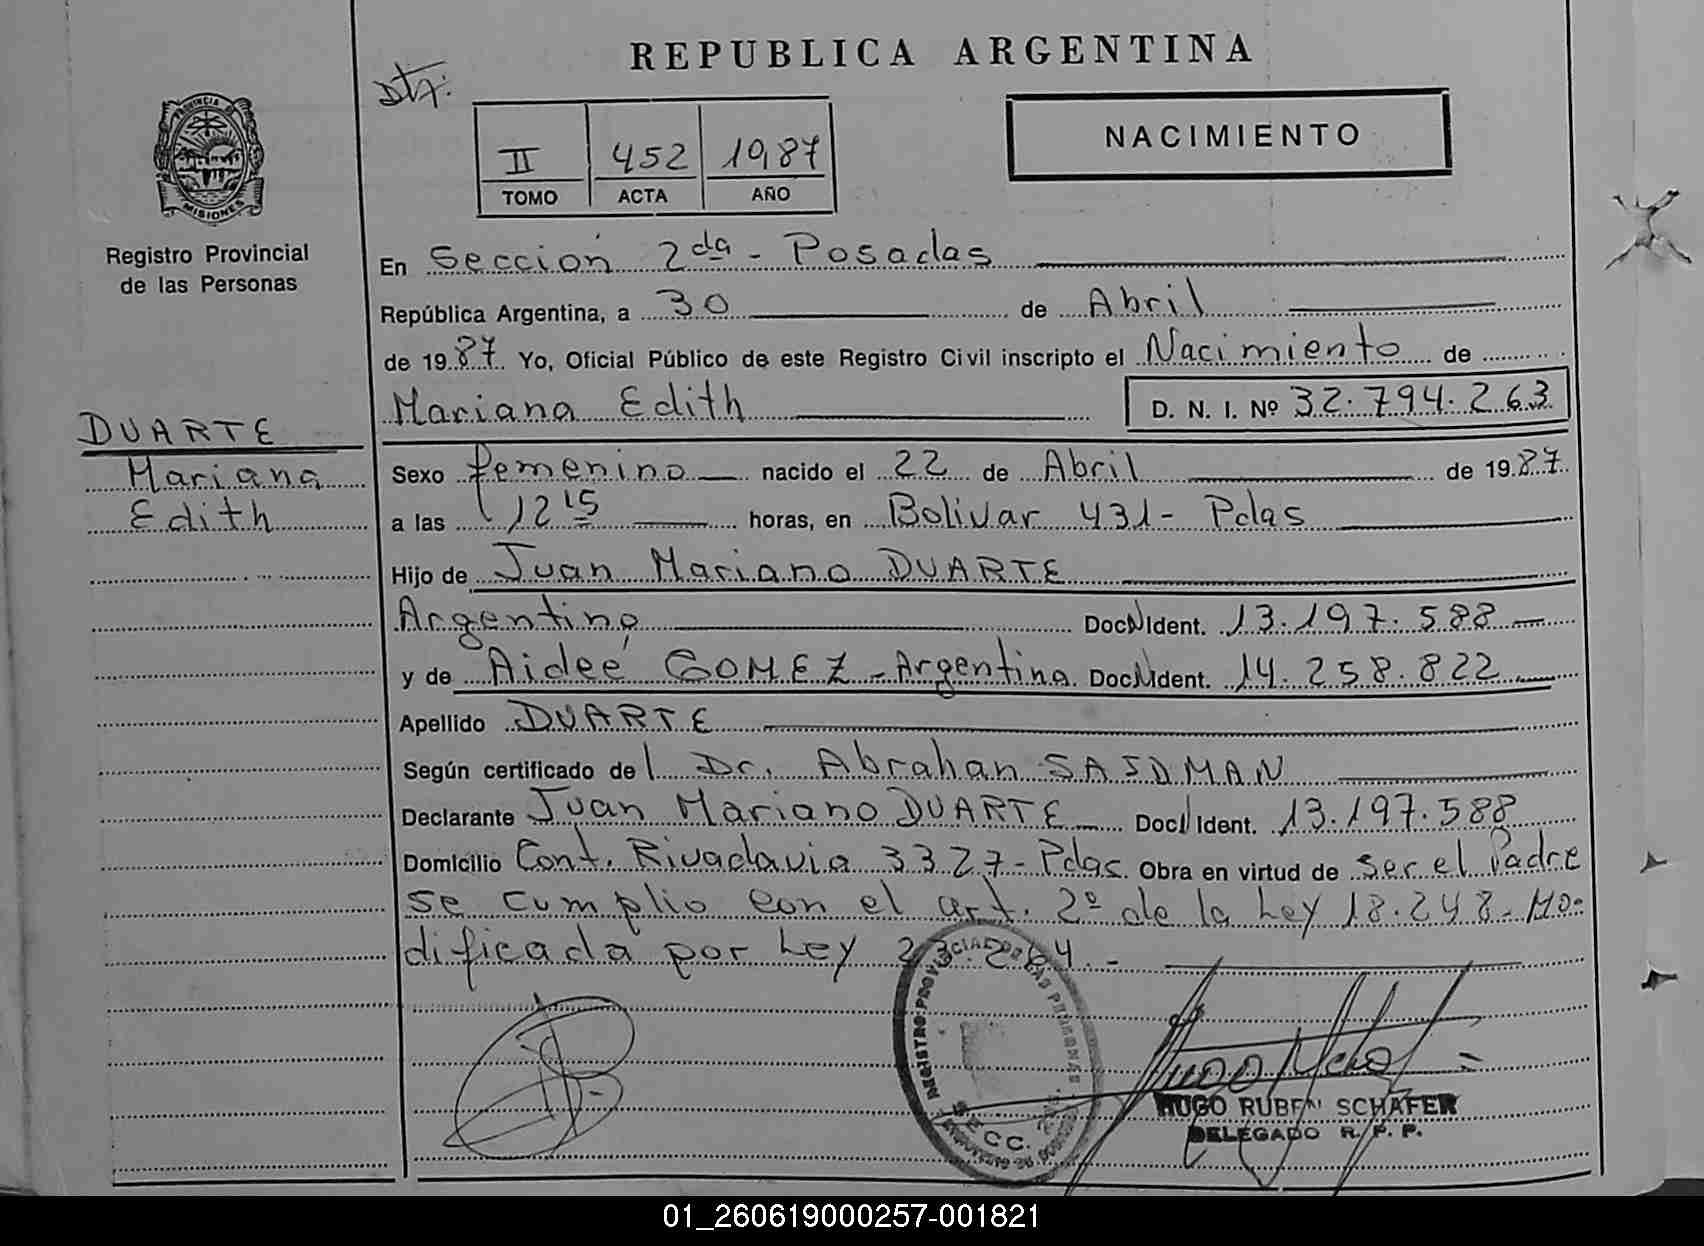 REPUBLICA ARGENTINA
PROVINCIA D
MISIONES
Registro Provincial
de las Personas
II 452 1987
TOMO ACTA AÑO
NACIMIENTO
En Sección 2da - Posadas
República Argentina, a 30 de Abril
de 1987 Yo, Oficial Público de este Registro Civil inscripto el Nacimiento de
Mariana Edith D. N. I. Nº 32.794.263
DUARTE
Mariana
Edith
Sexo femenino nacido el 22 de Abril de 1987
a las 12 15 horas, en Bolivar 431 - Pdas
Hijo de Juan Mariano DUARTE
Argentino Doc N Ident. 13.197.588
y de Aideé GOMEZ - Argentina Doc N Ident. 14.258.822
Apellido DUARTE
Según certificado del Dr. Abrahan SAIDMAN
Declarante Juan Mariano DUARTE Doc N Ident. 13.197.588
Domicilio Cont. Rivadavia 3327 - Pdas. Obra en virtud de ser el Padre
se cumplio con el art. 2º de la Ley 18.248 - Mo-
dificada por Ley 23.264. -
REGISTRO PROVINCIAL DE LAS PERSONAS
SECC.
HUGO RUBEN SCHAFER
DELEGADO R. P. P.
01_260619000257-001821